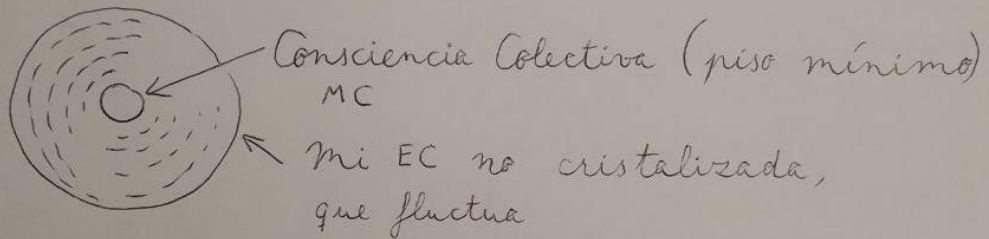 Consciencia Colectiva (piso mínimo)
MC
Mi EC no cristalizada,
que fluctua